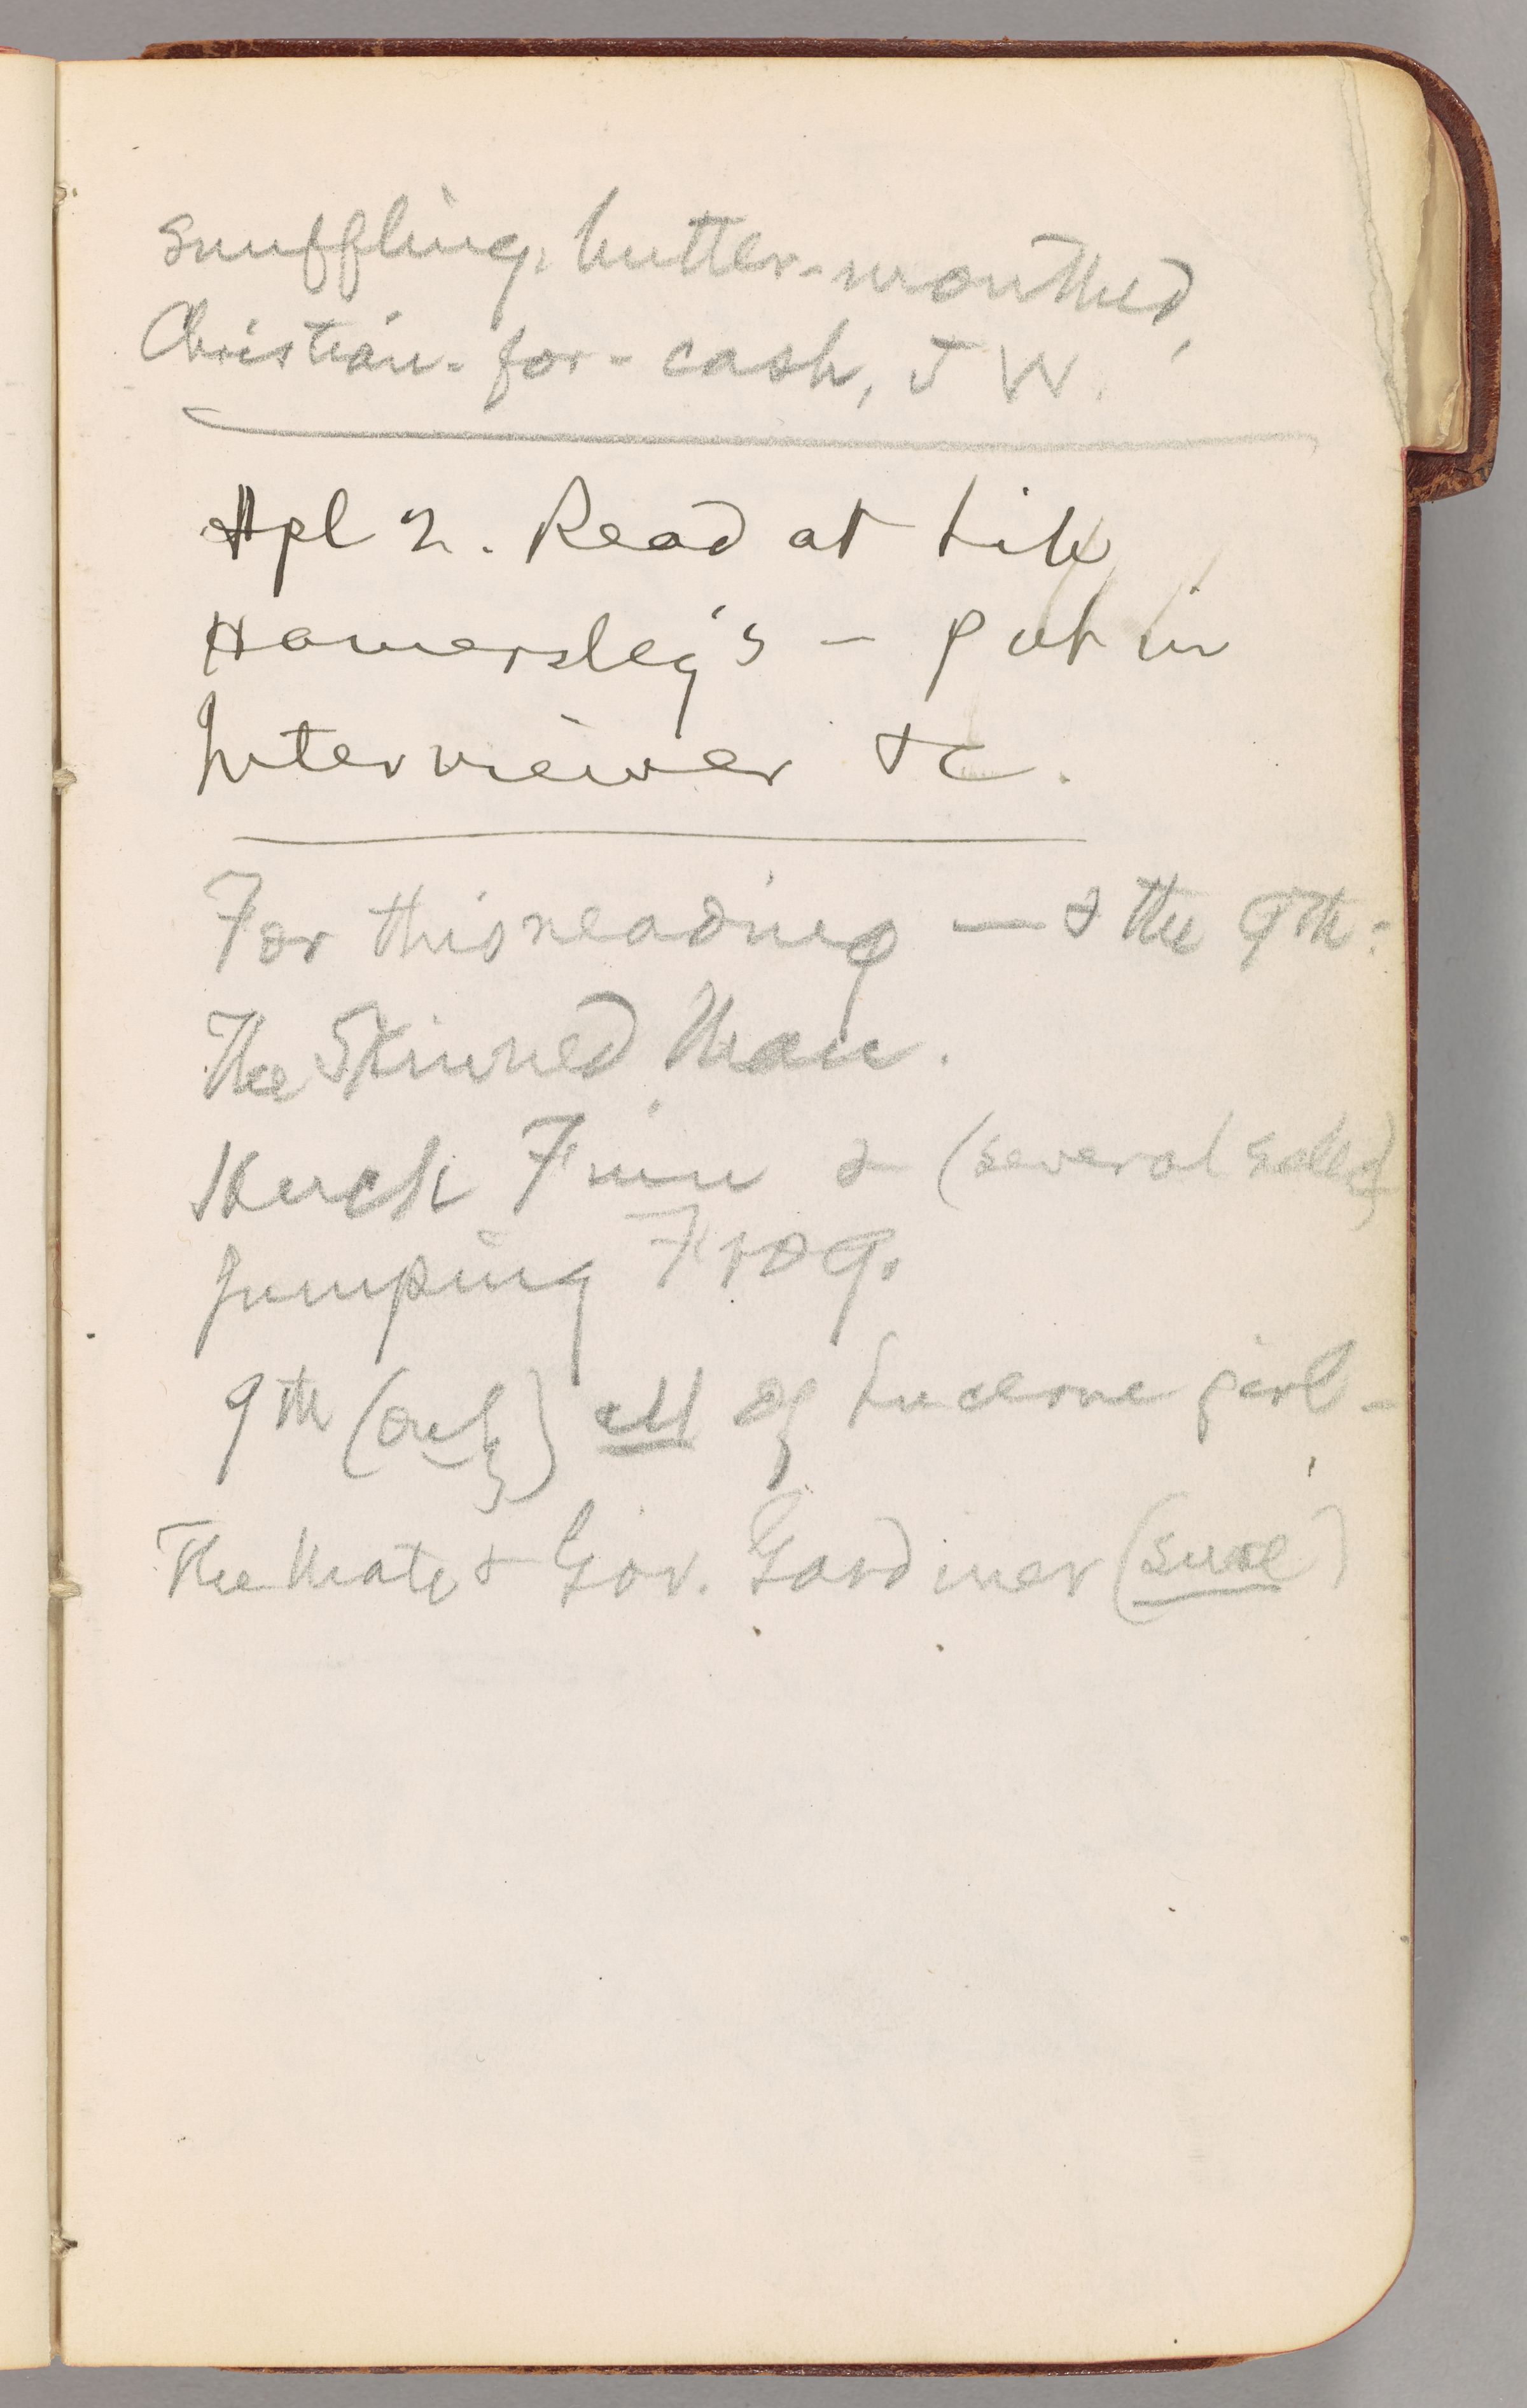 snuffling, butter-mouthed,
Christian-for-cash, J W.
Apl 2. Read at Lily
Hamersley's — put in
Interviewer &c.
For this reading — & the 9th:
The Skinned Man.
Huck Finn & (several
Jumping Frog.
9th (only) all of Lucerne girl-
The Mate & Gov. Gardiner (sure)